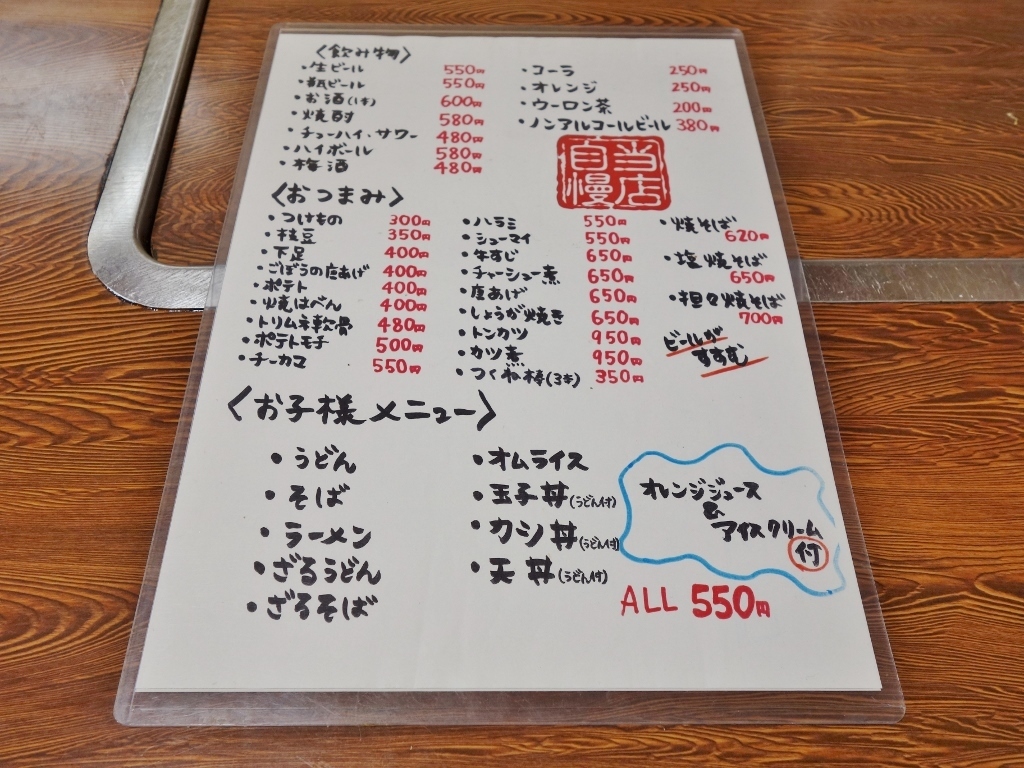 〈飲み物〉
・生ビール 550円
・瓶ビール 550円
・お酒(1本) 600円
・焼酎 580円
・チューハイ、サワー 480円
・ハイボール 580円
・梅酒 480円
・コーラ 250円
・オレンジ 250円
・ウーロン茶 200円
・ノンアルコールビール 380円
当店
自慢
〈おつまみ〉
・つけもの 300円
・枝豆 350円
・下足 400円
・ごぼうの唐あげ 400円
・ポテト 400円
・焼はんぺん 400円
・トリムネ軟骨 480円
・ポテトモチ 500円
・チーカマ 550円
・ハラミ 550円
・シューマイ 550円
・牛すじ 650円
・チャーシュー煮 650円
・唐あげ 650円
・しょうが焼き 650円
・トンカツ 950円
・カツ煮 950円
・つくね棒(3本) 350円
・焼そば
620円
・塩焼そば
650円
・担々焼そば
700円
ビールが
すすむ
〈お子様メニュー〉
・うどん
・そば
・ラーメン
・ざるうどん
・ざるそば
・オムライス
・玉子丼(うどん付)
・カツ丼(うどん付)
・天丼(うどん付)
オレンジジュース
&
アイスクリーム
付
ALL 550円